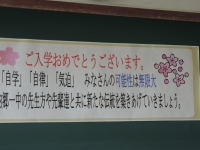 ご入学おめでとうございます。
「自学」「自律」「気迫」 みなさんの可能性は無限大
郷一中の先生方や先輩達と共に新たな伝統を築きあげていきましょう。